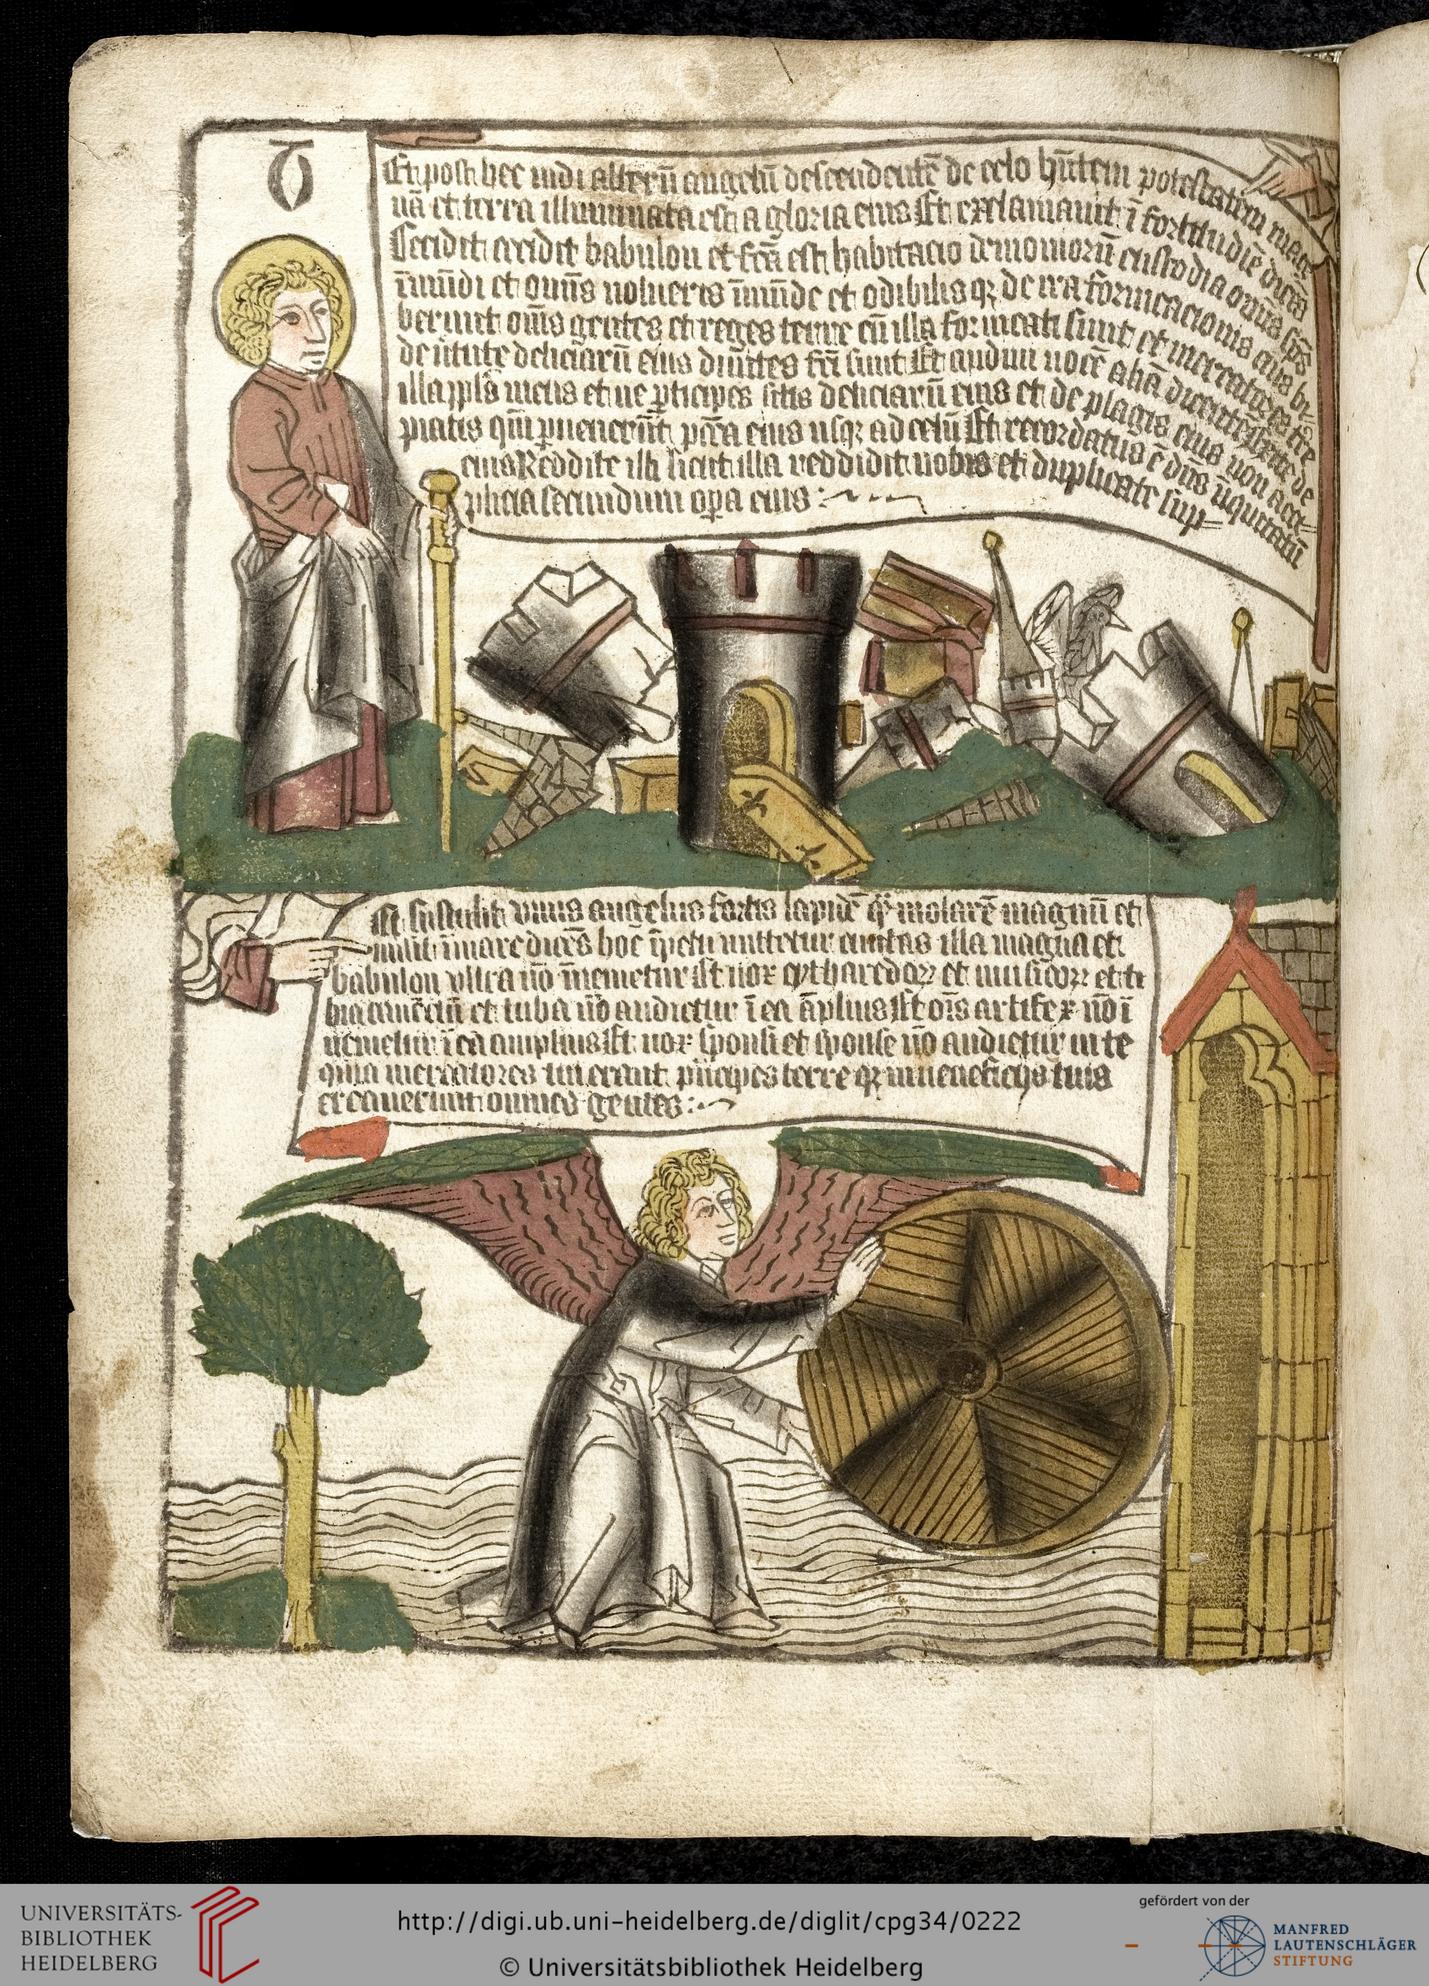 Et post hec uidi alterū angelū descendentē de celo hn̄tem potestatem mag
nā et terra illuminata est a gloria eius Et exclamauit ī fortitudīe dicēs
Cecidit cecidit babulon et fc̄a est habitacio demoniorū custodia om̄is sp̄s
īmūdi et om̄is uolucris īmūde et odibilis qꝫ de ira fornicacionis eius bi-
berunt om̄s gentes et reges terre cū illa fornicati sunt et mercatores tr̄e
de ūtute deliciarū eius diuites fc̄i sunt Et audiui uocē aliā dicentē Exite de
illa pp̄ls meus et ne ꝑticipes sitis deliciarū eius et de plagis eius non acci-
piatis qm̄ ꝑuenerūt pc̄ca eius usqꝫ ad celū Et recordatus ē dn̄s īiquitatū
eius Reddite illi sicut illa reddidit uobis et duplicate dup-
plicia secundum oꝑa eius
Et sustulit vnus angelus fortis lapidē qͥ molarē magnū et
misit ī mare dicēs hoc īpetu mittetur ciuitas illa magna et
babulon vltra nō īuenietur Et uox cytharedoꝝ et musicoꝝ et ti
bia canēciū et tuba nō audietur ī ea āplius Et ois artifex nō ī
uenietur ī ea amplius Et uox sponsi et sponse nō audietur in te
quia mercatores tui erant pͥncipes terre qꝫ in ueneficiis tuis
errauerunt omnes gentes
UNIVERSITÄTS-
BIBLIOTHEK
HEIDELBERG
http://digi.ub.uni-heidelberg.de/diglit/cpg34/0222
© Universitätsbibliothek Heidelberg
gefördert von der
MANFRED
LAUTENSCHLÄGER
STIFTUNG